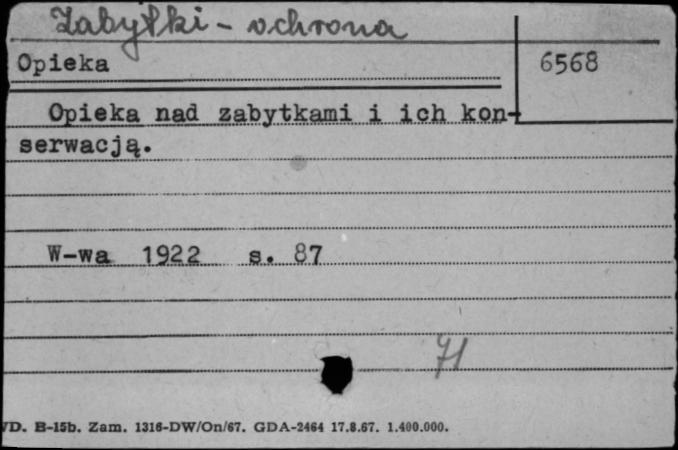 Zabytki - ochrona
Opieka
6568
Opieka nad zabytkami i ich kon-
serwacją.
W-wa 1922 s. 87
71
WD. B-15b. Zam. 1316-DW/On/67. GDA-2464 17.8.67. 1.400.000.